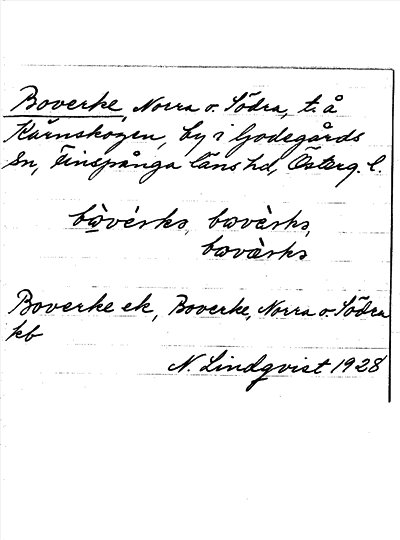 Boverke, Norra o. Södra, t. å
Kärnskogen, by i Godegårds
Sn, Finspånga läns hd, Österg. l.
bòvérks, bovèrks,
bovàrks
Boverke ek, Boverke, Norra o. Södra
kb
N. Lindqvist 1928